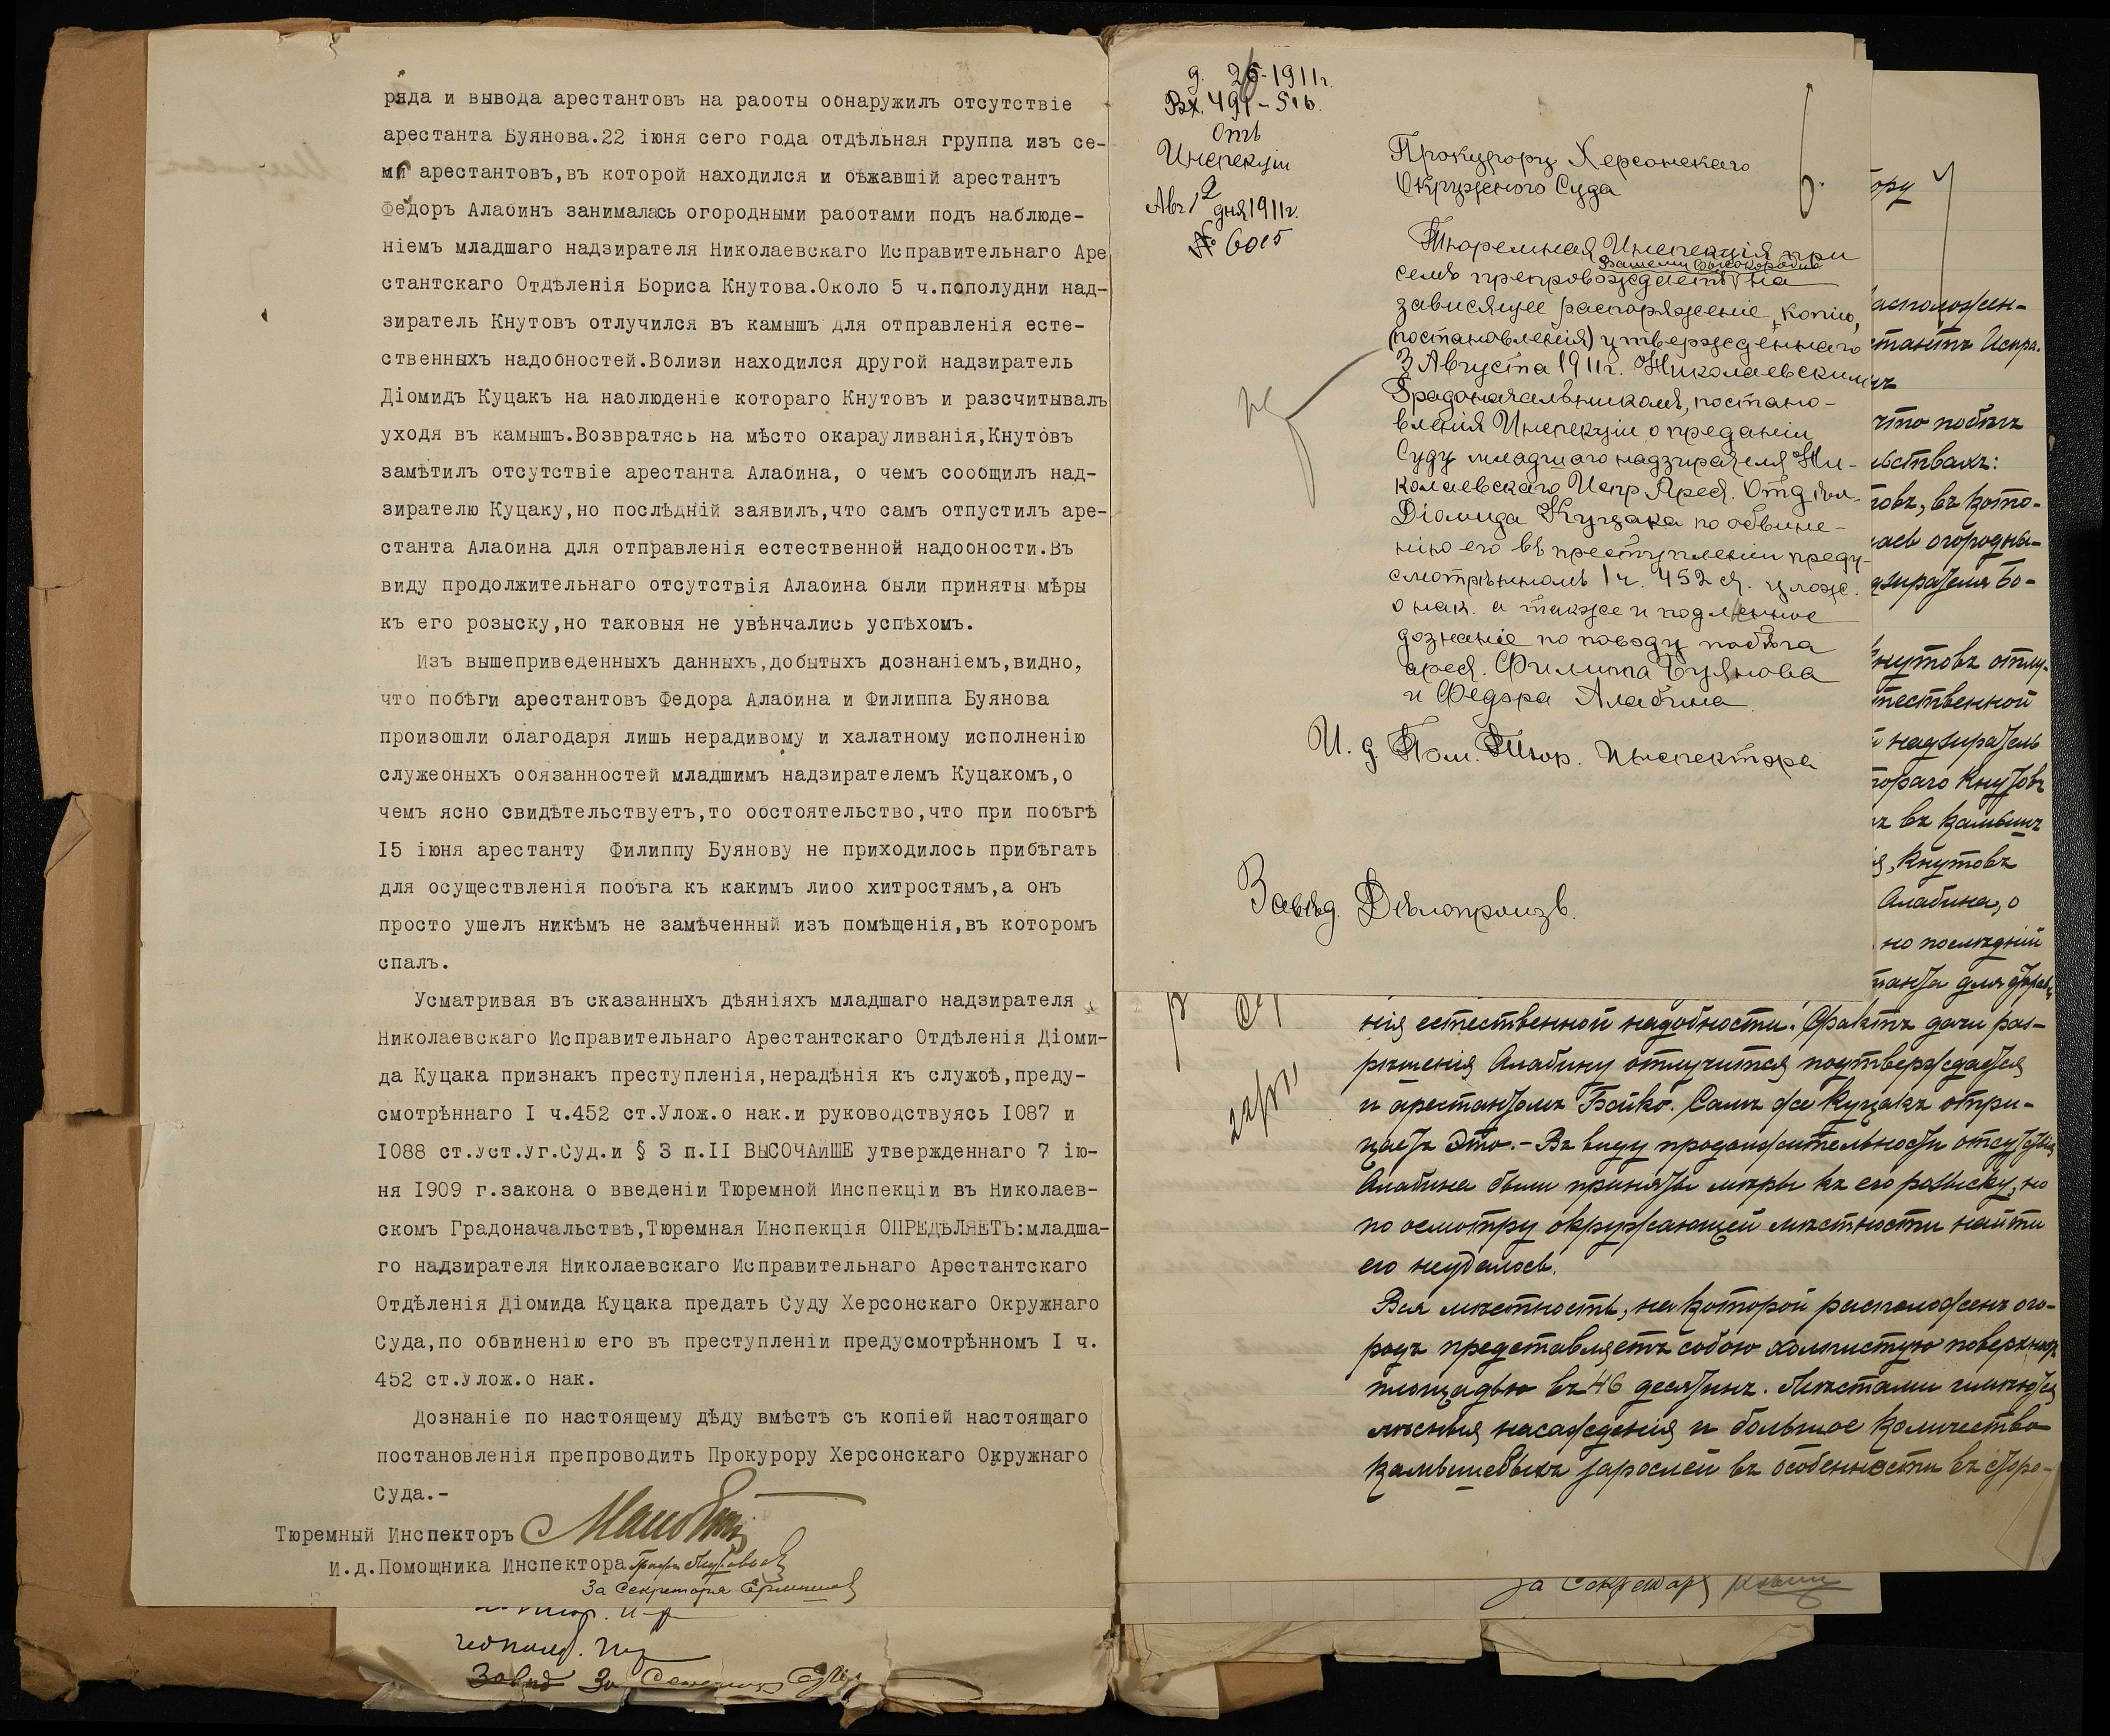 ряда и вывода арестантовъ на работы обнаружилъ отсутствіе
арестанта Буянова.22 іюня сего года отдѣльная группа изъ се-
ми арестантовъ,въ которой находился и бѣжавшій арестантъ
Федоръ Алабинъ занималась огородными работами подъ наблюде-
ніемъ младшаго надзирателя Николаевскаго Исправительнаго Аре
стантскаго Отдѣленія Бориса Кнутова.Около 5 ч.пополудни над-
зиратель Кнутовъ отлучился въ камышъ для отправленія есте-
ственныхъ надобностей.Вблизи находился другой надзиратель
Діомидъ Куцакъ на наблюденіе котораго Кнутовъ и разсчитывалъ
уходя въ камышъ.Возвратясь на мѣсто окарауливанія,Кнутовъ
замѣтилъ отсутствіе арестанта Алабина, о чемъ сообщилъ над-
зирателю Куцаку,но послѣдній заявилъ,что самъ отпустилъ аре-
станта Алабина для отправленія естественной надобности.Въ
виду продолжительнаго отсутствія Алабина были приняты мѣры
къ его розыску,но таковыя не увѣнчались успѣхомъ.
Изъ вышеприведенныхъ данныхъ,добытыхъ дознаніемъ,видно,
что побѣги арестантовъ Федора Алабина и Филиппа Буянова
произошли благодаря лишь нерадивому и халатному исполненію
служебныхъ обязанностей младшимъ надзирателемъ Куцакомъ,о
чемъ ясно свидѣтельствуетъ,то обстоятельство,что при побѣгѣ
I5 іюня арестанту Филиппу Буянову не приходилось прибѣгать
для осуществленія побѣга къ какимъ либо хитростямъ,а онъ
просто ушелъ никѣмъ не замѣченный изъ помѣщенія,въ которомъ
спалъ.
Усматривая въ сказанныхъ дѣяніяхъ младшаго надзирателя
Николаевскаго Исправительнаго Арестантскаго Отдѣленія Діоми-
да Куцака признакъ преступленія,нерадѣнія къ службѣ,преду-
смотрѣннаго I ч.452 ст.Улож.о нак.и руководствуясь I087 и
I088 ст.Уст.Уг.Суд.и § 3 п.II ВЫСОЧАЙШЕ утвержденнаго 7 ію-
ня I909 г.закона о введеніи Тюремной Инспекціи въ Николаев-
скомъ Градоначальствѣ,Тюремная Инспекція ОПРЕДѢЛЯЕТЪ:младша-
го надзирателя Николаевскаго Исправительнаго Арестантскаго
Отдѣленія Діомида Куцака предать Суду Херсонскаго Окружнаго
Суда,по обвиненію его въ преступленіи предусмотрѣнномъ I ч.
452 ст.Улож.о нак.
Дознаніе по настоящему дѣду вмѣстѣ съ копіей настоящаго
постановленія препроводить Прокурору Херсонскаго Окружнаго
Суда.-
Тюремный Инспекторъ
И.д.Помощника Инспектора
За Секретаря
За
д. 26-1911г.
Вх. 491-516.
Отъ
Инспекціи
Авг 12 дня 1911г.
№ 6015
Прокурору Херсонскаго
Окружного Суда
Тюремная Инспекція при
семъ препровождаетъ Вашему Высокородію на
зависящее распоряженіе, копію,
(постановленія) утвержденнаго
3 Августа 1911г. Николаевскимъ
Градоначальникомъ, постано-
вленія Инспекціи о преданіи
Суду младшаго надзирателя Ни-
колаевскаго Испр Арест. Отдѣл.
Діомида Куцака по обвине-
нію его въ преступленіи преду-
смотрѣнномъ 1 ч. 452 ст. улож.
о нак. а также и подлинное
дознаніе по поводу побѣга
арест. Филипа Буянова
и Федора Алабина.
И. д. Пом. Тюр. Инспектора
Завѣд. Дѣлопроизв.
ору
асположен-
стантъ Испра.
что побѣгъ
льствахъ:
товъ, въ кото-
ась огородны-
дзирателя Бо-
Кнутовъ отлу-
тественной
й надзиратель
тораго Кнутовъ
въ камышъ
я, Кнутовъ
Алабина, о
но послѣдній
танта для отправл
нія естественной надобности. Фактъ дачи раз-
рѣшенія Алабину отлучится подтверждается
и арестантомъ Бойко. Самъ же Куцакъ отри-
цаетъ это.- Въ виду продолжительности отсутствія
Алабина были приняты мѣры къ его розыску, но
по осмотру окружающей мѣстности найти
его неудалось.
Вся мѣстность, на которой расположенъ ого-
родъ представляетъ собою холмистую поверхность
площадью въ 46 десятинъ. Мѣстами имѣются
лѣсныя насажденія и большое количество
камышевыхъ зарослей въ особенности въ сторо-
За Секретаря